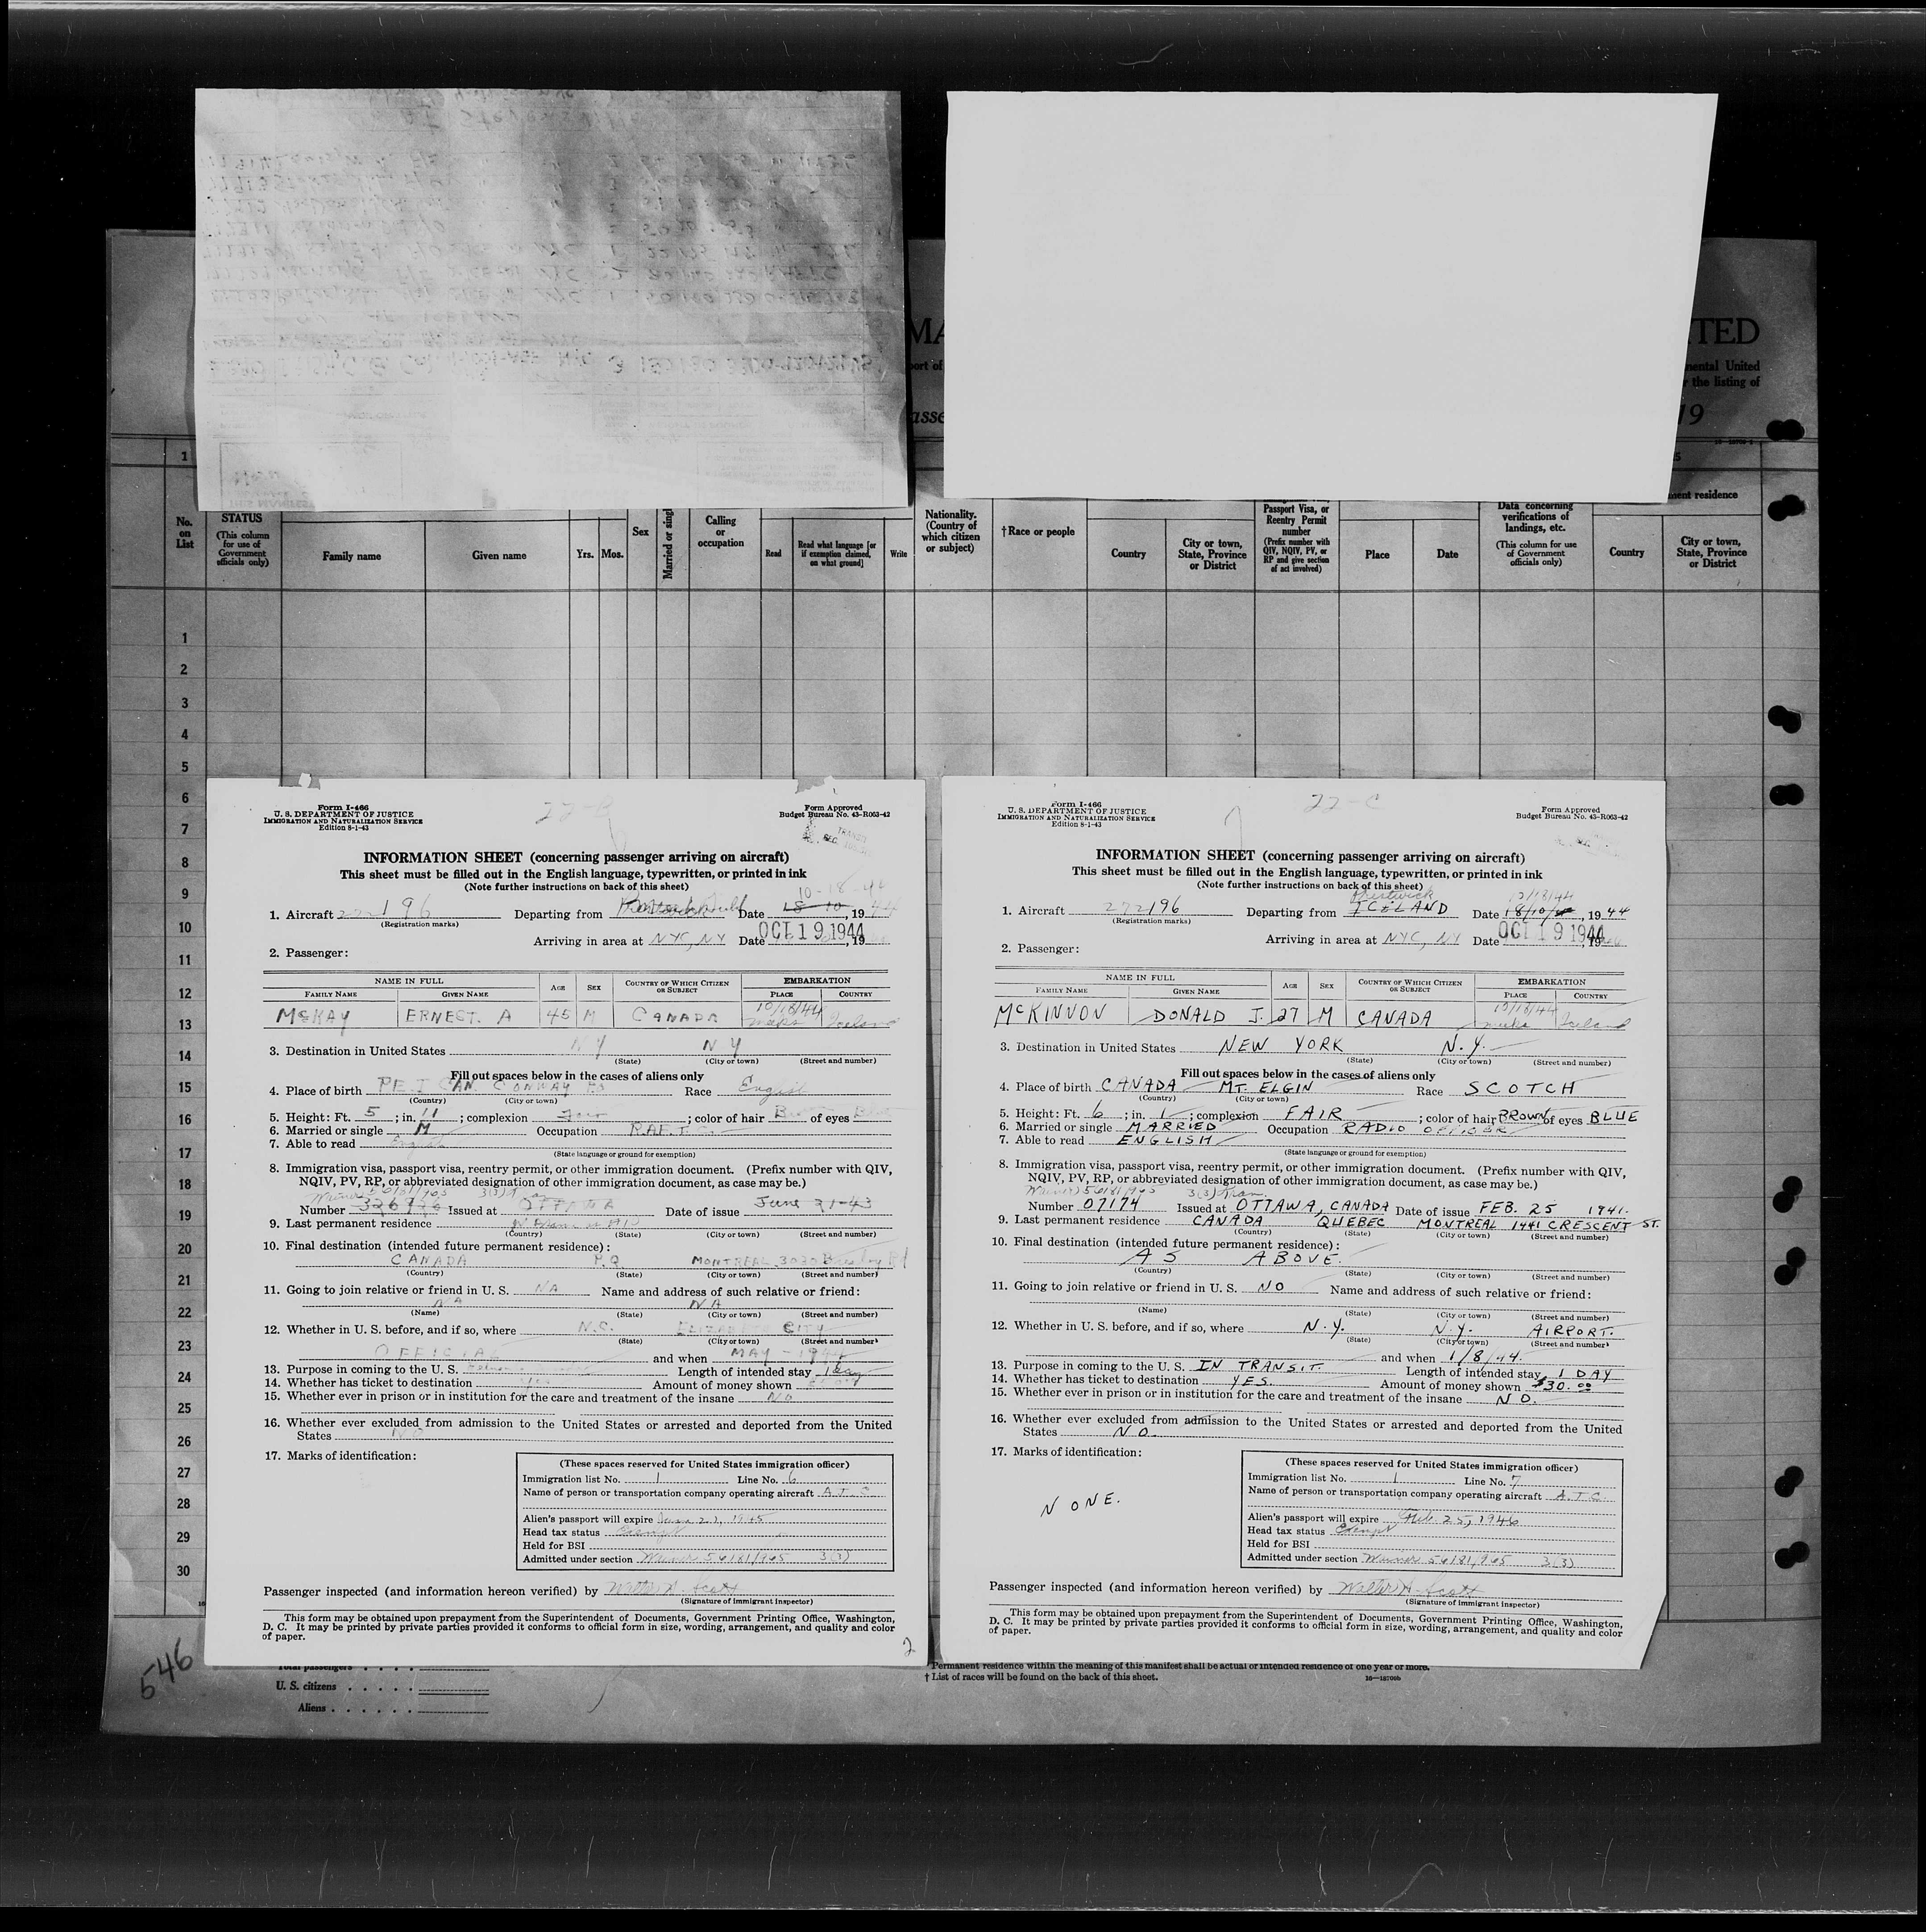 MA TED
port of nental United
r the listing of
asse 19
1
ment residence
No. on List
STATUS
(This column for use of Government officials only)
Family name
Given name
Yrs. Mos.
Sex
Married or singl
Calling or occupation
Read
Read what language [or if exemption claimed, on what ground]
Write
Nationality. (Country of which citizen or subject)
†Race or people
Country
City or town, State, Province or District
Passport Visa, or Reentry Permit number
(Prefix number with QIV, NQIV, PV, or RP and give section of act involved)
Place
Date
Data concerning verifications of landings, etc.
(This column for use of Government officials only)
Country
City or town, State, Province or District
1
2
3
4
5
6
7
8
9
10
11
12
13
14
15
16
17
18
19
20
21
22
23
24
25
26
27
28
29
30
Form I-466
U. S. DEPARTMENT OF JUSTICE
IMMIGRATION AND NATURALIZATION SERVICE
Edition 8-1-43
22-B
Form Approved
Budget Bureau No. 43-R063-42
INFORMATION SHEET (concerning passenger arriving on aircraft)
This sheet must be filled out in the English language, typewritten, or printed in ink
(Note further instructions on back of this sheet)
10-18-44
1. Aircraft 272196 Departing from Date 18 10, 1944
(Registration marks)
Arriving in area at NYC, NY Date OCT 19 1944, 19
2. Passenger:
NAME IN FULL AGE SEX COUNTRY OF WHICH CITIZEN OR SUBJECT EMBARKATION
FAMILY NAME GIVEN NAME PLACE COUNTRY
10/18/44
McKAY ERNEST. A 45 M CANADA Meeks Iceland
3. Destination in United States N Y N Y
(State) (City or town) (Street and number)
Fill out spaces below in the cases of aliens only
4. Place of birth P.E.I CAN. CONWAY Race English
(Country) (City or town)
5. Height: Ft. 5; in. 11; complexion Fair; color of hair of eyes Blue
6. Married or single M Occupation R.A.F.T.C.
7. Able to read English
(State language or ground for exemption)
8. Immigration visa, passport visa, reentry permit, or other immigration document. (Prefix number with QIV,
NQIV, PV, RP, or abbreviated designation of other immigration document, as case may be.)
Waiver 56181/965 3(3)
Number Issued at OTTAWA Date of issue June 21-43
9. Last permanent residence
(Country) (State) (City or town) (Street and number)
10. Final destination (intended future permanent residence):
CANADA P.Q MONTREAL 3030
(Country) (State) (City or town) (Street and number)
11. Going to join relative or friend in U. S. NA Name and address of such relative or friend:
NA NA
(Name) (State) (City or town) (Street and number)
12. Whether in U. S. before, and if so, where N.C. ELIZABETH CITY
(State) (City or town) (Street and number)
OFFICIAL and when MAY - 1944
13. Purpose in coming to the U. S. Length of intended stay 1 day
14. Whether has ticket to destination Yes Amount of money shown
15. Whether ever in prison or in institution for the care and treatment of the insane No
16. Whether ever excluded from admission to the United States or arrested and deported from the United
States NO
17. Marks of identification:
(These spaces reserved for United States immigration officer)
Immigration list No. 1 Line No. 6
Name of person or transportation company operating aircraft A.T.C
Alien's passport will expire June 21, 1945
Head tax status Exempt
Held for BSI
Admitted under section Waiver 56181/965 3(3)
Passenger inspected (and information hereon verified) by Walter H. Scott
(Signature of immigrant inspector)
This form may be obtained upon prepayment from the Superintendent of Documents, Government Printing Office, Washington,
D. C. It may be printed by private parties provided it conforms to official form in size, wording, arrangement, and quality and color
of paper.
2
Form I-466
U. S. DEPARTMENT OF JUSTICE
IMMIGRATION AND NATURALIZATION SERVICE
Edition 8-1-43
22-C
Form Approved
Budget Bureau No. 43-R063-42
INFORMATION SHEET (concerning passenger arriving on aircraft)
This sheet must be filled out in the English language, typewritten, or printed in ink
(Note further instructions on back of this sheet)
Prestwick 10/18/44
1. Aircraft 272196 Departing from ICELAND Date 18/10/44, 1944
(Registration marks)
Arriving in area at NYC, NY Date OCT 19 1944, 19
2. Passenger:
NAME IN FULL AGE SEX COUNTRY OF WHICH CITIZEN OR SUBJECT EMBARKATION
FAMILY NAME GIVEN NAME PLACE COUNTRY
10/18/44
McKINNON DONALD J. 27 M CANADA Meeks Iceland
3. Destination in United States NEW YORK N.Y.
(State) (City or town) (Street and number)
Fill out spaces below in the cases of aliens only
4. Place of birth CANADA MT. ELGIN Race SCOTCH
(Country) (City or town)
5. Height: Ft. 6; in. 1; complexion FAIR; color of hair BROWN of eyes BLUE
6. Married or single MARRIED Occupation RADIO OFFICER
7. Able to read ENGLISH
(State language or ground for exemption)
8. Immigration visa, passport visa, reentry permit, or other immigration document. (Prefix number with QIV,
NQIV, PV, RP, or abbreviated designation of other immigration document, as case may be.)
Waiver 56181/965 3(3) Tran.
Number 07174 Issued at OTTAWA, CANADA Date of issue FEB. 25 1941.
9. Last permanent residence CANADA QUEBEC MONTREAL 1441 CRESCENT ST.
(Country) (State) (City or town) (Street and number)
10. Final destination (intended future permanent residence):
AS ABOVE.
(Country) (State) (City or town) (Street and number)
11. Going to join relative or friend in U. S. NO Name and address of such relative or friend:
(Name) (State) (City or town) (Street and number)
12. Whether in U. S. before, and if so, where N.Y. N.Y. AIRPORT.
(State) (City or town) (Street and number)
and when 1/8/44.
13. Purpose in coming to the U. S. IN TRANSIT. Length of intended stay 1 DAY
14. Whether has ticket to destination YES. Amount of money shown $30.00
15. Whether ever in prison or in institution for the care and treatment of the insane NO.
16. Whether ever excluded from admission to the United States or arrested and deported from the United
States NO.
17. Marks of identification:
NONE.
(These spaces reserved for United States immigration officer)
Immigration list No. 1 Line No. 7
Name of person or transportation company operating aircraft A.T.C.
Alien's passport will expire Feb. 25, 1946
Head tax status Exempt
Held for BSI
Admitted under section Waiver 56181/965 3(3)
Passenger inspected (and information hereon verified) by Walter H. Scott
(Signature of immigrant inspector)
This form may be obtained upon prepayment from the Superintendent of Documents, Government Printing Office, Washington,
D. C. It may be printed by private parties provided it conforms to official form in size, wording, arrangement, and quality and color
of paper.
546
Total passengers . . . .
U. S. citizens . . . . .
Aliens . . . . . . .
Permanent residence within the meaning of this manifest shall be actual or intended residence of one year or more.
† List of races will be found on the back of this sheet.
16—18700b